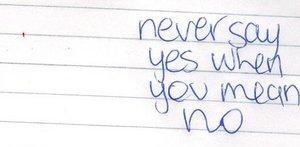 never say
yes when
you mean
no